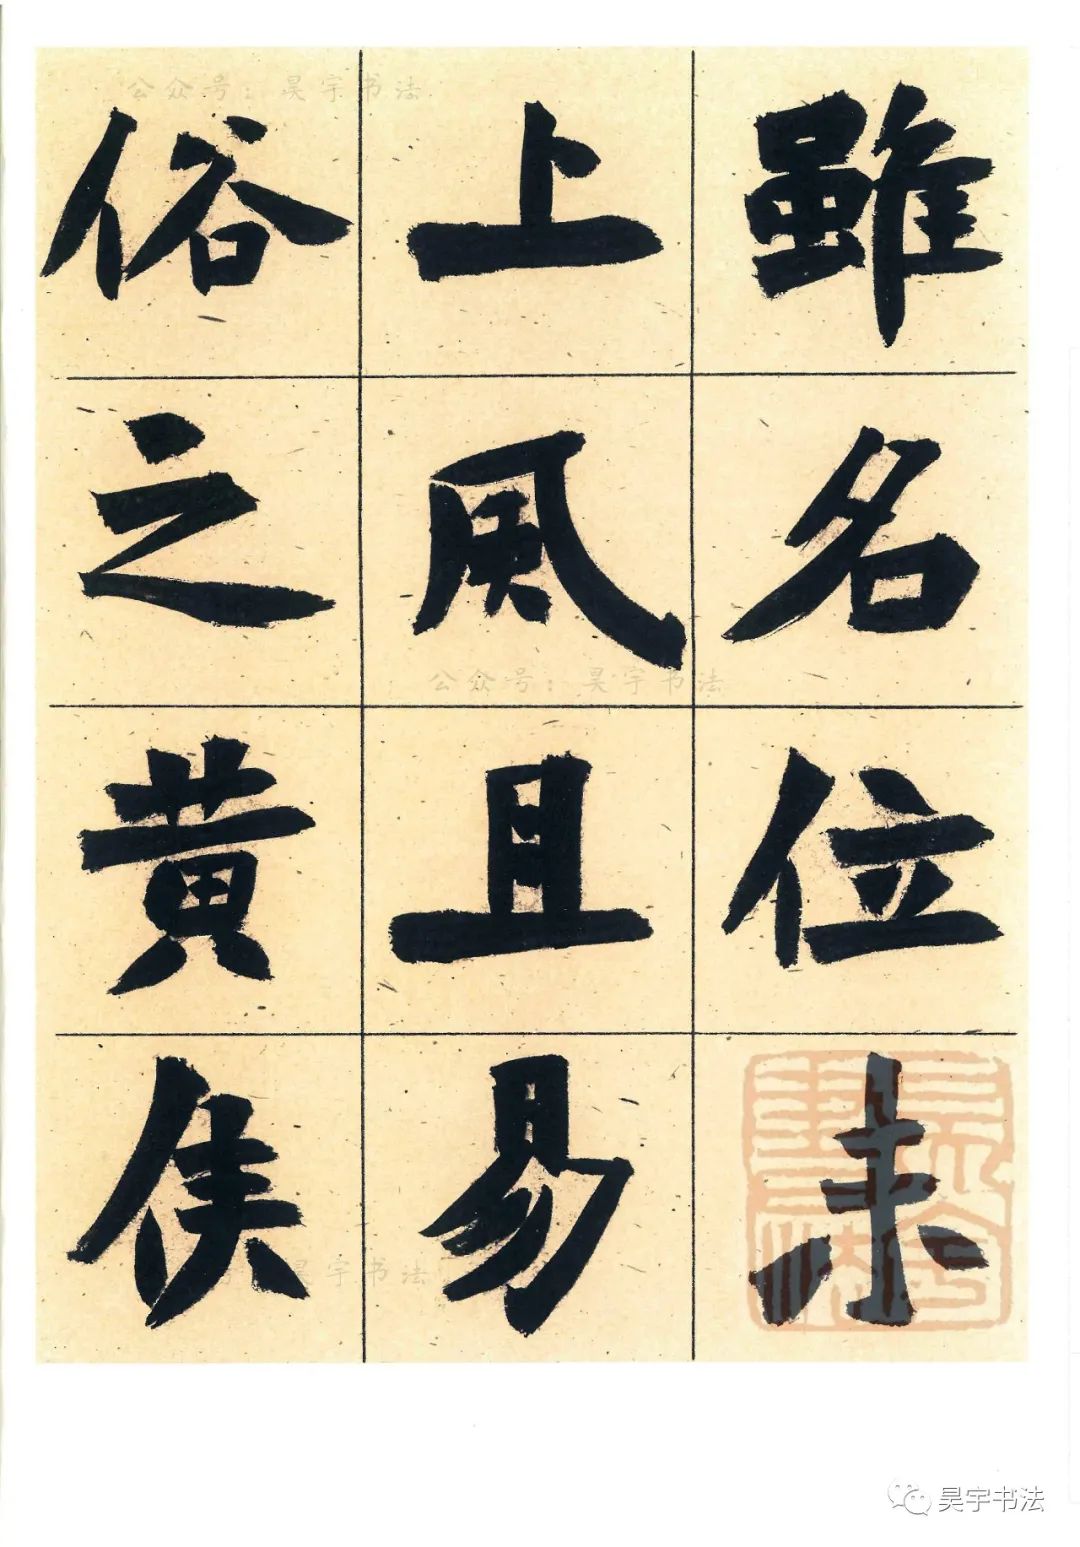 雖名位未
上風且易
俗之黄侯
公众号：昊宇书法
公众号：昊宇书法
昊宇书法
昊宇书法